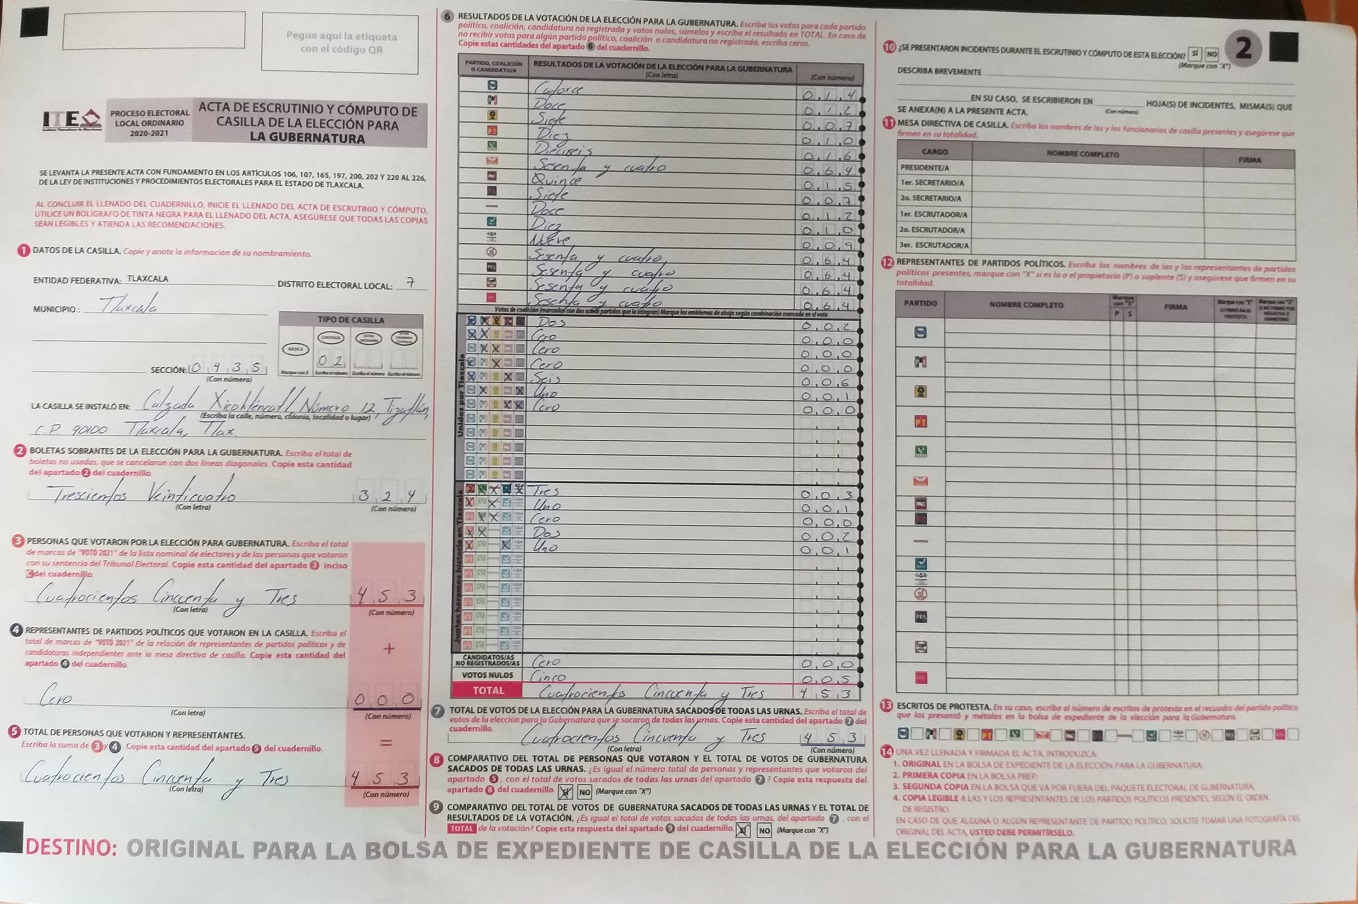 Pegue aquí la etiqueta
con el código QR
ITE
PROCESO ELECTORAL
LOCAL ORDINARIO
2020-2021
ACTA DE ESCRUTINIO Y CÓMPUTO DE
CASILLA DE LA ELECCIÓN PARA
LA GUBERNATURA
SE LEVANTA LA PRESENTE ACTA CON FUNDAMENTO EN LOS ARTÍCULOS 106, 107, 165, 197, 200, 202 Y 220 AL 226,
DE LA LEY DE INSTITUCIONES Y PROCEDIMIENTOS ELECTORALES PARA EL ESTADO DE TLAXCALA.
AL CONCLUIR EL LLENADO DEL CUADERNILLO, INICIE EL LLENADO DEL ACTA DE ESCRUTINIO Y CÓMPUTO,
UTILICE UN BOLÍGRAFO DE TINTA NEGRA PARA EL LLENADO DEL ACTA, ASEGÚRESE QUE TODAS LAS COPIAS
SEAN LEGIBLES Y ATIENDA LAS RECOMENDACIONES.
1 DATOS DE LA CASILLA. Copie y anote la información de su nombramiento.
ENTIDAD FEDERATIVA: TLAXCALA DISTRITO ELECTORAL LOCAL: 7
MUNICIPIO: Tlaxcala
TIPO DE CASILLA
BÁSICA
02
SECCIÓN: 0435
(Con número)
LA CASILLA SE INSTALÓ EN: Calzada Xicohténcatl Número 12, Tizatlán,
(Escriba la calle, número, colonia, localidad o lugar)
C.P. 90100 Tlaxcala, Tlax
2 BOLETAS SOBRANTES DE LA ELECCIÓN PARA LA GUBERNATURA. Escriba el total de
boletas no usadas, que se cancelaron con dos líneas diagonales. Copie esta cantidad
del apartado 2 del cuadernillo.
Trescientos Veinticuatro 324
(Con letra) (Con número)
3 PERSONAS QUE VOTARON POR LA ELECCIÓN PARA GUBERNATURA. Escriba el total
de marcas de "VOTÓ 2021" de la lista nominal de electores y de las personas que votaron
con su sentencia del Tribunal Electoral. Copie esta cantidad del apartado 3 inciso
del cuadernillo.
Cuatrocientos Cincuenta y Tres 453
(Con letra) (Con número)
4 REPRESENTANTES DE PARTIDOS POLÍTICOS QUE VOTARON EN LA CASILLA. Escriba el
total de marcas de "VOTÓ 2021" de la relación de representantes de partidos políticos y de
candidaturas independientes ante la mesa directiva de casilla. Copie esta cantidad del
apartado 4 del cuadernillo.
+
Cero 000
(Con letra) (Con número)
5 TOTAL DE PERSONAS QUE VOTARON Y REPRESENTANTES.
Escriba la suma de 3 y 4. Copie esta cantidad del apartado 5 del cuadernillo.
=
Cuatrocientos Cincuenta y Tres 453
(Con letra) (Con número)
6 RESULTADOS DE LA VOTACIÓN DE LA ELECCIÓN PARA LA GUBERNATURA. Escriba los votos para cada partido
político, coalición, candidatura no registrada y votos nulos, súmelos y escriba el resultado en TOTAL. En caso de
no recibir votos para algún partido político, coalición o candidatura no registrada, escriba ceros.
Copie estas cantidades del apartado 6 del cuadernillo.
PARTIDO, COALICIÓN O CANDIDATO/A RESULTADOS DE LA VOTACIÓN DE LA ELECCIÓN PARA LA GUBERNATURA
(Con letra) (Con número)
Catorce 014
Doce 012
Siete 007
Diez 010
Dieciseis 016
Sesenta y cuatro 064
Quince 015
Siete 007
Doce 012
Diez 010
Nueve 009
Sesenta y cuatro 064
Sesenta y cuatro 064
Sesenta y cuatro 064
Sesenta y cuatro 064
Votos de coalición
Unidos por Tlaxcala
Dos 002
Cero 000
Cero 000
Cero 000
Seis 006
Uno 001
Cero 000
Juntos haremos historia en Tlaxcala
Tres 003
Uno 001
Cero 000
Dos 002
Uno 001
CANDIDATOS/AS NO REGISTRADOS/AS Cero 000
VOTOS NULOS Cinco 005
TOTAL Cuatrocientos Cincuenta y Tres 453
7 TOTAL DE VOTOS DE LA ELECCIÓN PARA LA GUBERNATURA SACADOS DE TODAS LAS URNAS. Escriba el total de
votos de la elección para la Gubernatura que se sacaron de todas las urnas. Copie esta cantidad del apartado 7 del
cuadernillo.
Cuatrocientos Cincuenta y Tres 453
(Con letra) (Con número)
8 COMPARATIVO DEL TOTAL DE PERSONAS QUE VOTARON Y EL TOTAL DE VOTOS DE GUBERNATURA
SACADOS DE TODAS LAS URNAS. ¿Es igual el número total de personas y representantes que votaron del
apartado 5, con el total de votos sacados de todas las urnas del apartado 7? Copie esta respuesta del
apartado 8 del cuadernillo. SÍ X NO (Marque con "X")
9 COMPARATIVO DEL TOTAL DE VOTOS DE GUBERNATURA SACADOS DE TODAS LAS URNAS Y EL TOTAL DE
RESULTADOS DE LA VOTACIÓN. ¿Es igual el total de votos sacados de todas las urnas, del apartado 7, con el
TOTAL de la votación? Copie esta respuesta del apartado 9 del cuadernillo. SÍ X NO (Marque con "X")
2
10 ¿SE PRESENTARON INCIDENTES DURANTE EL ESCRUTINIO Y CÓMPUTO DE ESTA ELECCIÓN? SÍ NO
(Marque con "X")
DESCRIBA BREVEMENTE
EN SU CASO, SE ESCRIBIERON EN HOJA(S) DE INCIDENTES, MISMA(S) QUE
(Con número)
SE ANEXA(N) A LA PRESENTE ACTA.
11 MESA DIRECTIVA DE CASILLA. Escriba los nombres de las y los funcionarios de casilla presentes y asegúrese que
firmen en su totalidad.
CARGO NOMBRE COMPLETO FIRMA
PRESIDENTE/A
1er. SECRETARIO/A
2o. SECRETARIO/A
1er. ESCRUTADOR/A
2o. ESCRUTADOR/A
3er. ESCRUTADOR/A
12 REPRESENTANTES DE PARTIDOS POLÍTICOS. Escriba los nombres de las y los representantes de partidos
políticos presentes, marque con "X" si es la o el propietario (P) o suplente (S) y asegúrese que firmen en su
totalidad.
PARTIDO NOMBRE COMPLETO Marque con "X" FIRMA
P S
13 ESCRITOS DE PROTESTA. En su caso, escriba el número de escritos de protesta en el recuadro del partido político
que los presentó y métalos en la bolsa de expediente de la elección para la Gubernatura.
14 UNA VEZ LLENADA Y FIRMADA EL ACTA, INTRODUZCA:
1. ORIGINAL EN LA BOLSA DE EXPEDIENTE DE LA ELECCIÓN PARA LA GUBERNATURA;
2. PRIMERA COPIA EN LA BOLSA PREP;
3. SEGUNDA COPIA EN LA BOLSA QUE VA POR FUERA DEL PAQUETE ELECTORAL DE GUBERNATURA,
4. COPIA LEGIBLE A LAS Y LOS REPRESENTANTES DE LOS PARTIDOS POLÍTICOS PRESENTES, SEGÚN EL ORDEN
DE REGISTRO.
EN CASO DE QUE ALGUNA O ALGÚN REPRESENTANTE DE PARTIDO POLÍTICO, SOLICITE TOMAR UNA FOTOGRAFÍA DEL
ORIGINAL DEL ACTA, USTED DEBE PERMITÍRSELO.
DESTINO: ORIGINAL PARA LA BOLSA DE EXPEDIENTE DE CASILLA DE LA ELECCIÓN PARA LA GUBERNATURA